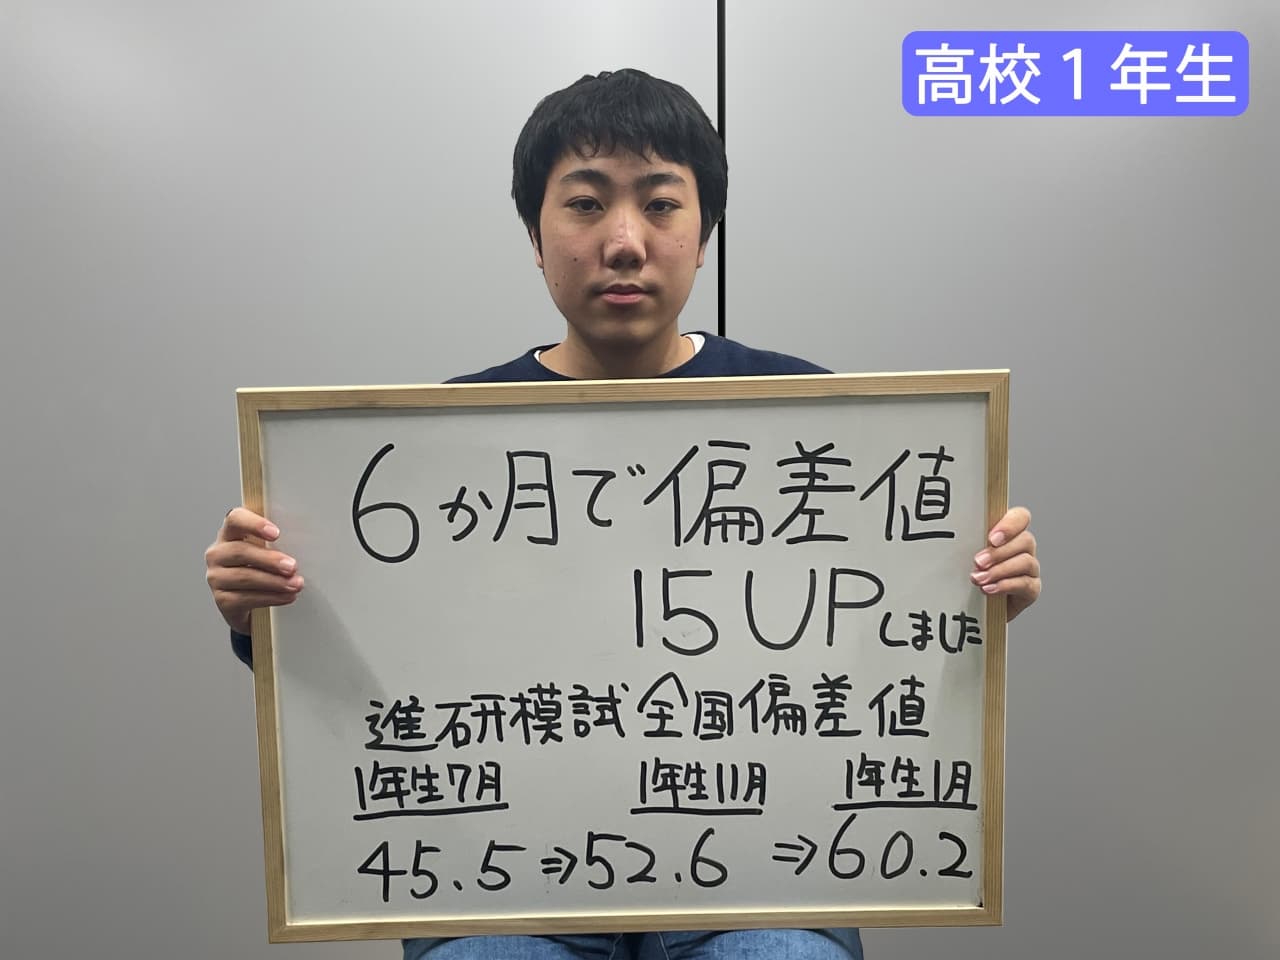 高校1年生
6か月で偏差値
15UPしました
進研模試全国偏差値
1年生7月 1年生11月 1年生1月
45.5⇒52.6⇒60.2